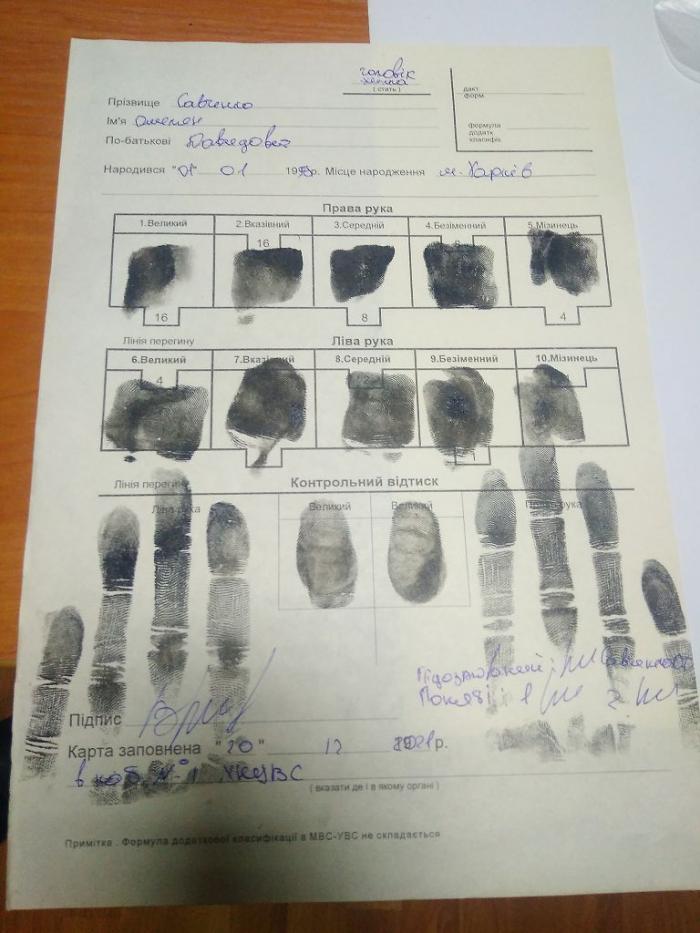 чоловік
жінка
( стать )
дакт.
форм.
Прізвище Савченко
Ім'я
формула
додатк.
класифік.
По-батькові Давидович
Народився "01" 01 199 р. Місце народження м. Харків
Права рука
1.Великий 2.Вказівний 3.Середній 4.Безіменний 5.Мізинець
16 8
16 8 4
Лінія перегину Ліва рука
6.Великий 7.Вказівний 8.Середній 9.Безіменний 10.Мізинець
4 2
1
Лінія перегину Контрольний відтиск
Ліва рука Великий Великий Права рука
Підозрюваний: Савченко
Поняті: 1 2
Підпис
Карта заповнена "20" 12 2021р.
в каб. №1
( вказати де і в якому органі )
Примітка . Формула додаткової класифікації в МВС-УВС не складається